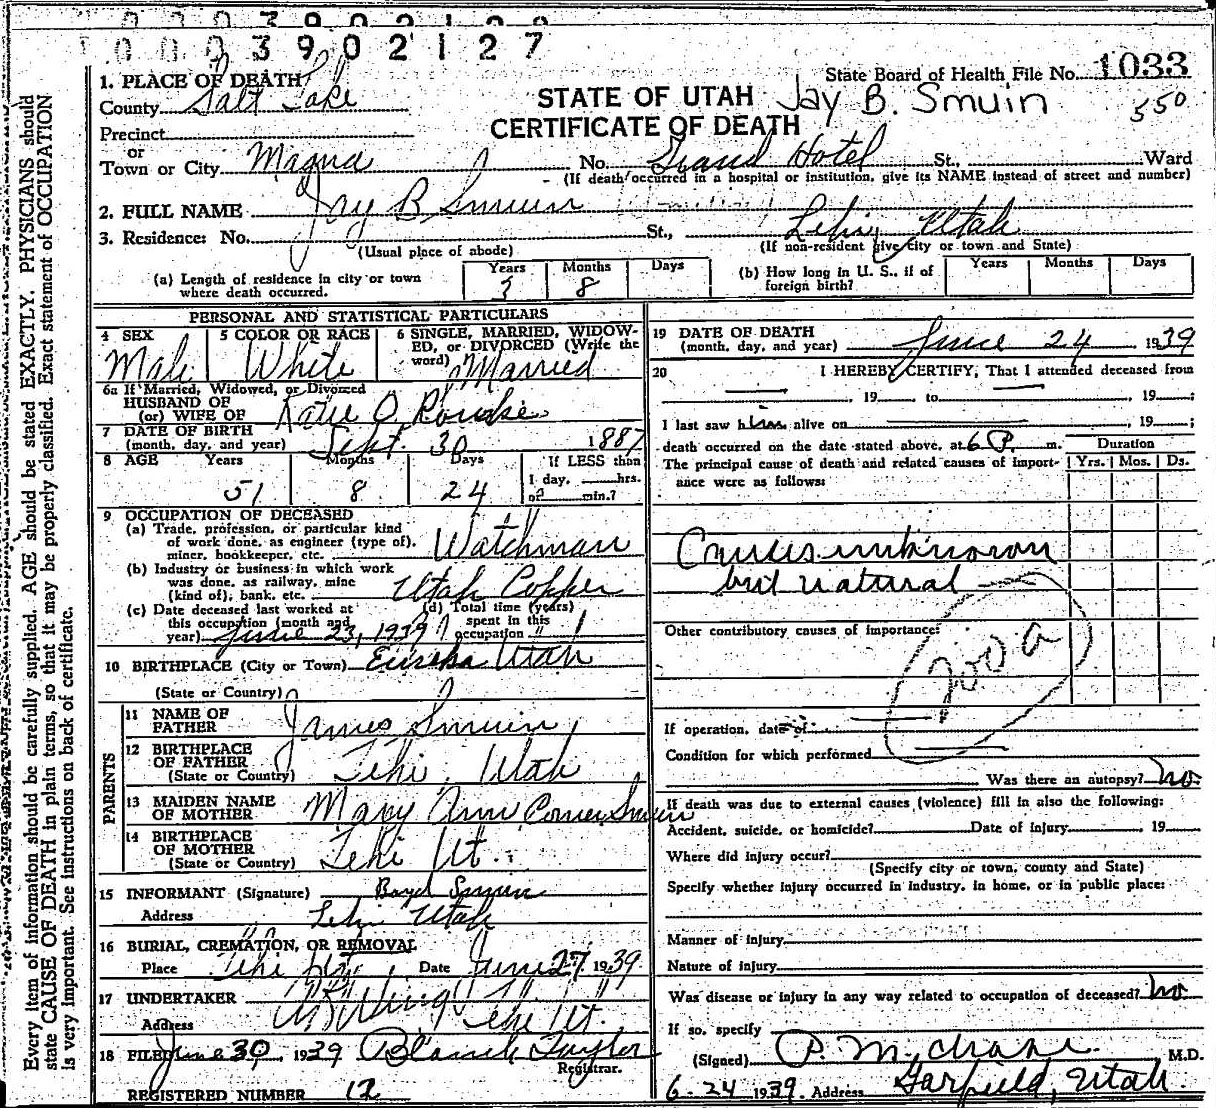 0003902127
1033
State Board of Health File No.
1. PLACE OF DEATH
County Salt Lake
STATE OF UTAH Jay B. Smuin
550
CERTIFICATE OF DEATH
Precinct
or
Town or City Magna No. Grand Hotel St., Ward
(If death occurred in a hospital or institution, give its NAME instead of street and number)
2. FULL NAME Jay B Smuin
3. Residence: No. St., Lehi, Utah
(Usual place of abode) (If non-resident give city or town and State)
(a) Length of residence in city or town where death occurred. Years 3 Months 8 Days
(b) How long in U. S., if of foreign birth? Years Months Days
PERSONAL AND STATISTICAL PARTICULARS
4 SEX Male
5 COLOR OR RACE White
6 SINGLE, MARRIED, WIDOWED, or DIVORCED (Write the word) Married
6a If Married, Widowed, or Divorced
HUSBAND OF
(or) WIFE OF Katie O. Rourke
7 DATE OF BIRTH
(month, day, and year) Sept. 30 1887
8 AGE Years 51 Months 8 Days 24 If LESS than
1 day, hrs.
or min.?
9 OCCUPATION OF DECEASED
(a) Trade, profession, or particular kind
of work done, as engineer (type of),
miner, bookkeeper, etc. Watchman
(b) Industry or business in which work
was done, as railway, mine
(kind of), bank, etc. Utah Copper
(c) Date deceased last worked at
this occupation (month and
year) June 23, 1939
(d) Total time (years)
spent in this
occupation
10 BIRTHPLACE (City or Town) Eureka Utah
(State or Country)
PARENTS
11 NAME OF
FATHER James Smuin
12 BIRTHPLACE
OF FATHER
(State or Country) Lehi, Utah
13 MAIDEN NAME
OF MOTHER Mary Ann Comer Smuin
14 BIRTHPLACE
OF MOTHER
(State or Country) Lehi Ut.
15 INFORMANT (Signature) Boyd Smuin
Address Lehi Utah
16 BURIAL, CREMATION, OR REMOVAL
Place Lehi Ut. Date June 27 1939
17 UNDERTAKER
Address Lehi Ut.
18 FILED June 30, 1939 Blanch Taylor
Registrar.
REGISTERED NUMBER 12
19 DATE OF DEATH
(month, day, and year) June 24 1939
20 I HEREBY CERTIFY, That I attended deceased from
, 19 to , 19 ;
I last saw him alive on , 19 ;
death occurred on the date stated above, at 6 P. m.
The principal cause of death and related causes of importance were as follows:
Duration
Yrs. Mos. Ds.
Causes unknown
but natural
Other contributory causes of importance:
200a
If operation, date of
Condition for which performed
Was there an autopsy? no
If death was due to external causes (violence) fill in also the following:
Accident, suicide, or homicide? Date of injury 19
Where did injury occur?
(Specify city or town, county and State)
Specify whether injury occurred in industry, in home, or in public place:
Manner of injury
Nature of injury
Was disease or injury in any way related to occupation of deceased? no
If so, specify
(Signed) M.D.
6-24 1939 Address Garfield, Utah.
Every item of information should be carefully supplied. AGE should be stated EXACTLY. PHYSICIANS should
state CAUSE OF DEATH in plain terms, so that it may be properly classified. Exact statement of OCCUPATION
is very important. See instructions on back of certificate.